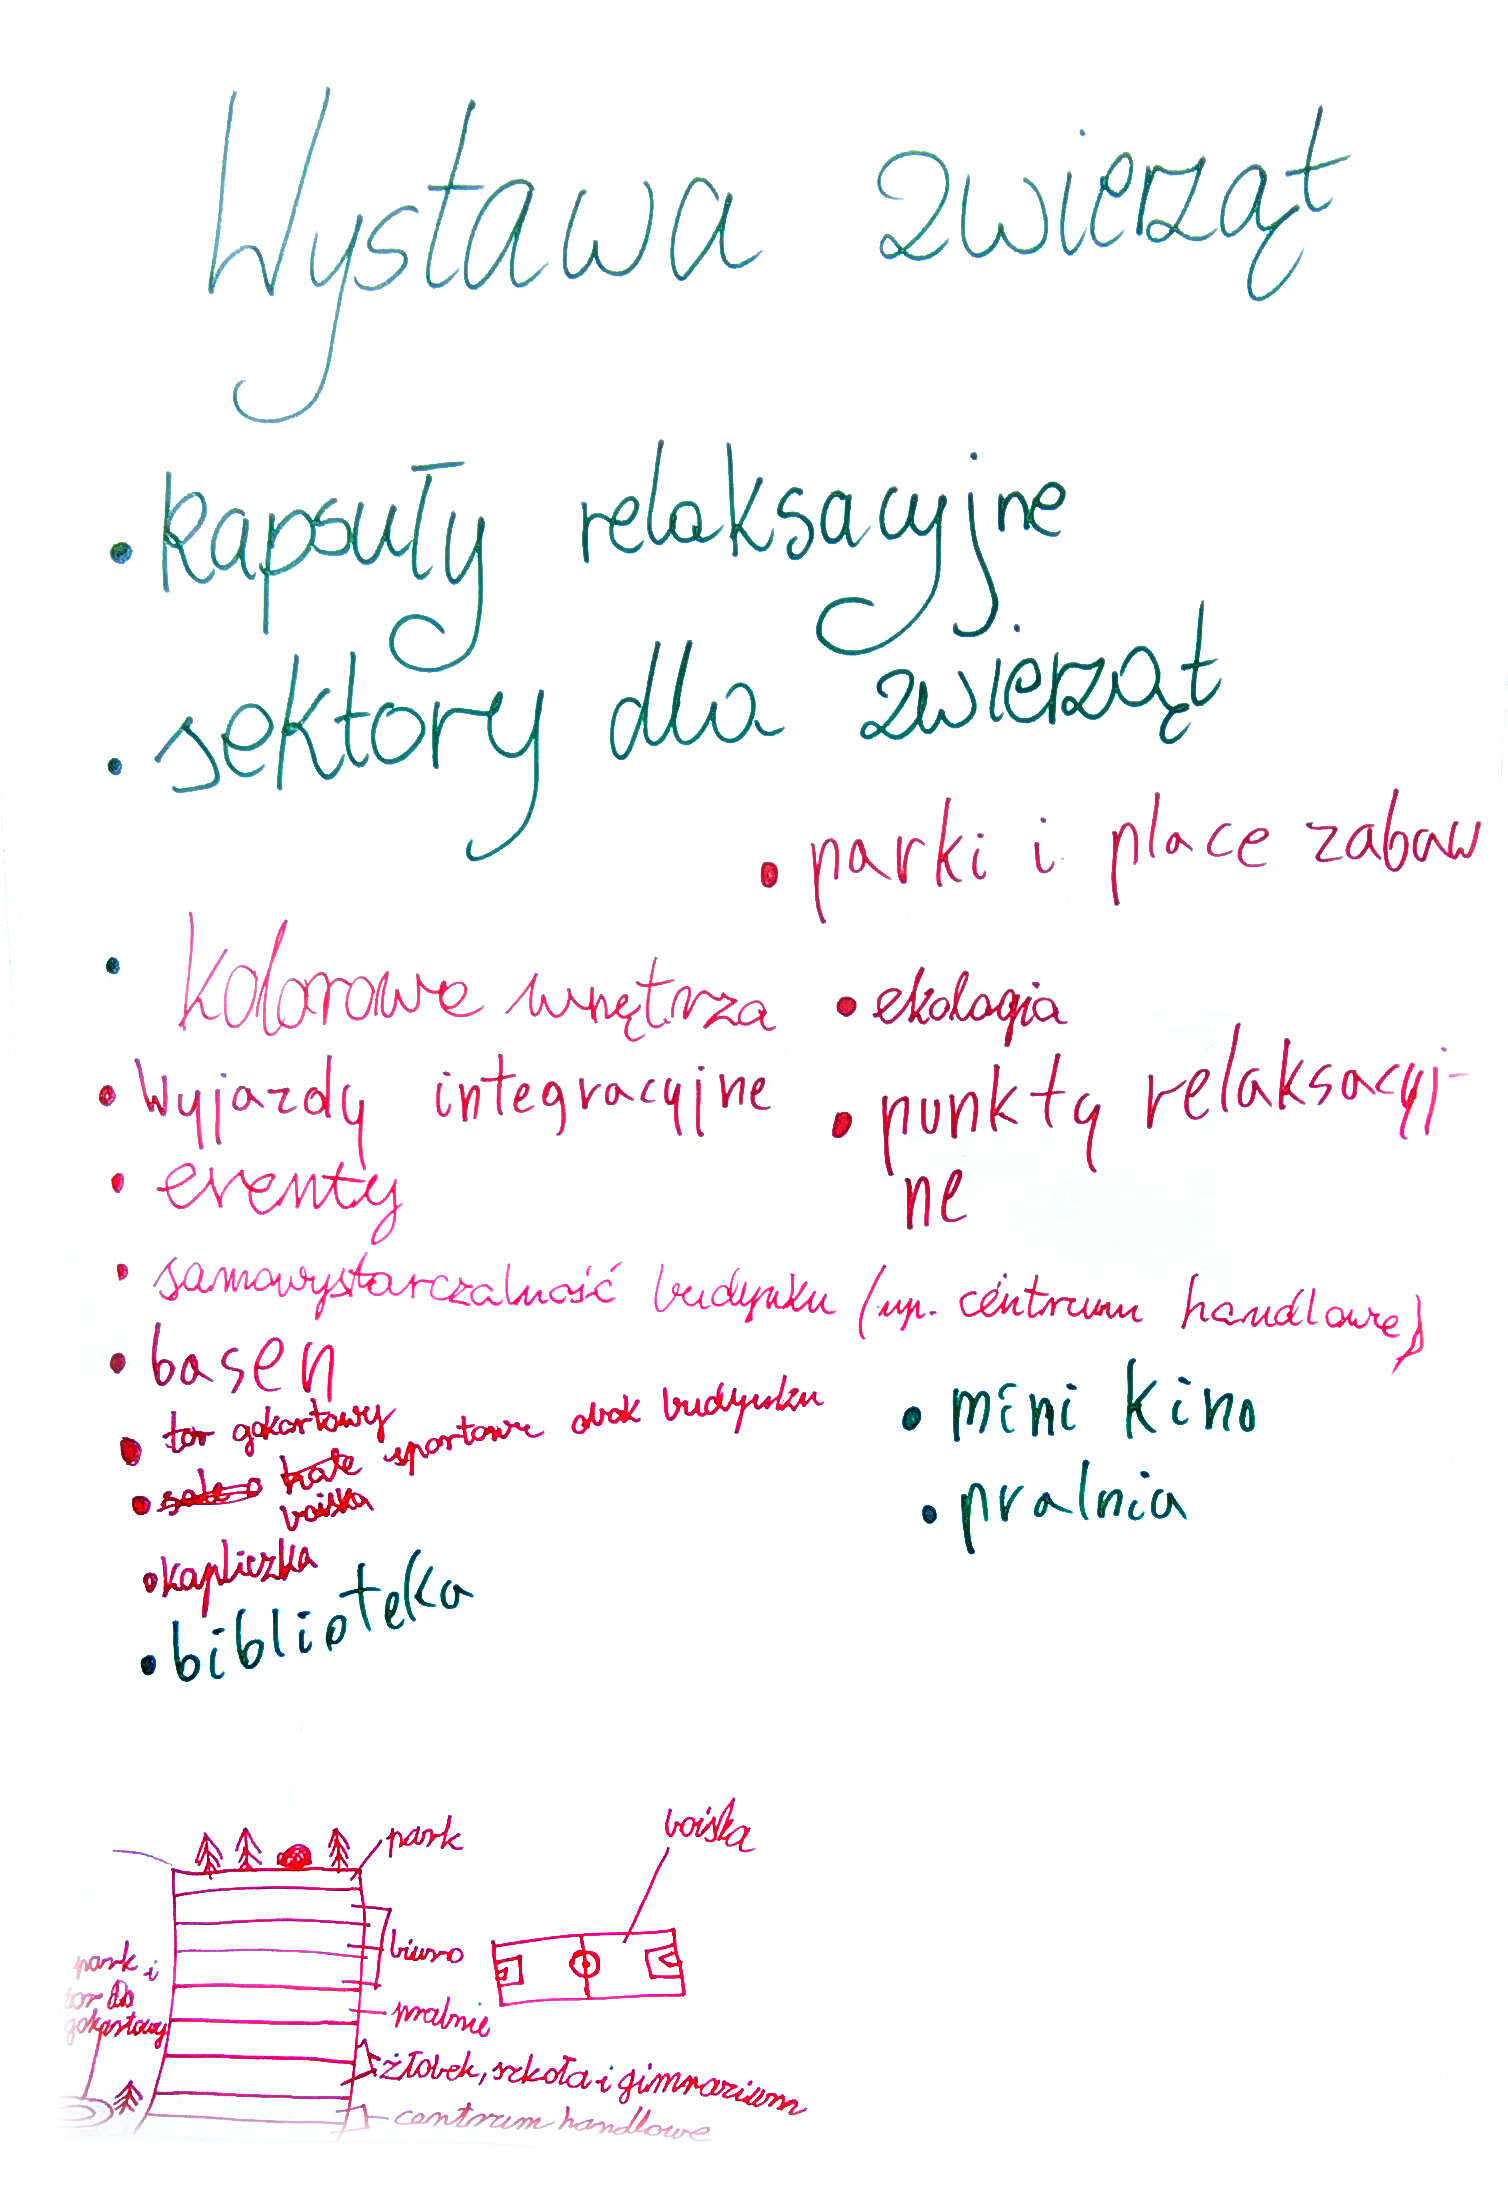 Wystawa zwierząt
• kapsuły relaksacyjne
• sektory dla zwierząt
• parki i place zabaw
• kolorowe wnętrza
• ekologia
• Wyjazdy integracyjne
• punkty relaksacyj-
ne
• eventy
• samowystarczalność budynku (np. centrum handlowe)
• basen
• mini kino
• tor gokartowy
• sportowe obok budynku
boiska
• pralnia
• kapliczka
• biblioteka
park
boiska
biuro
park i
tor
gokartowy
pralnie
żłobek, szkoła i gimnazium
centrum handlowe